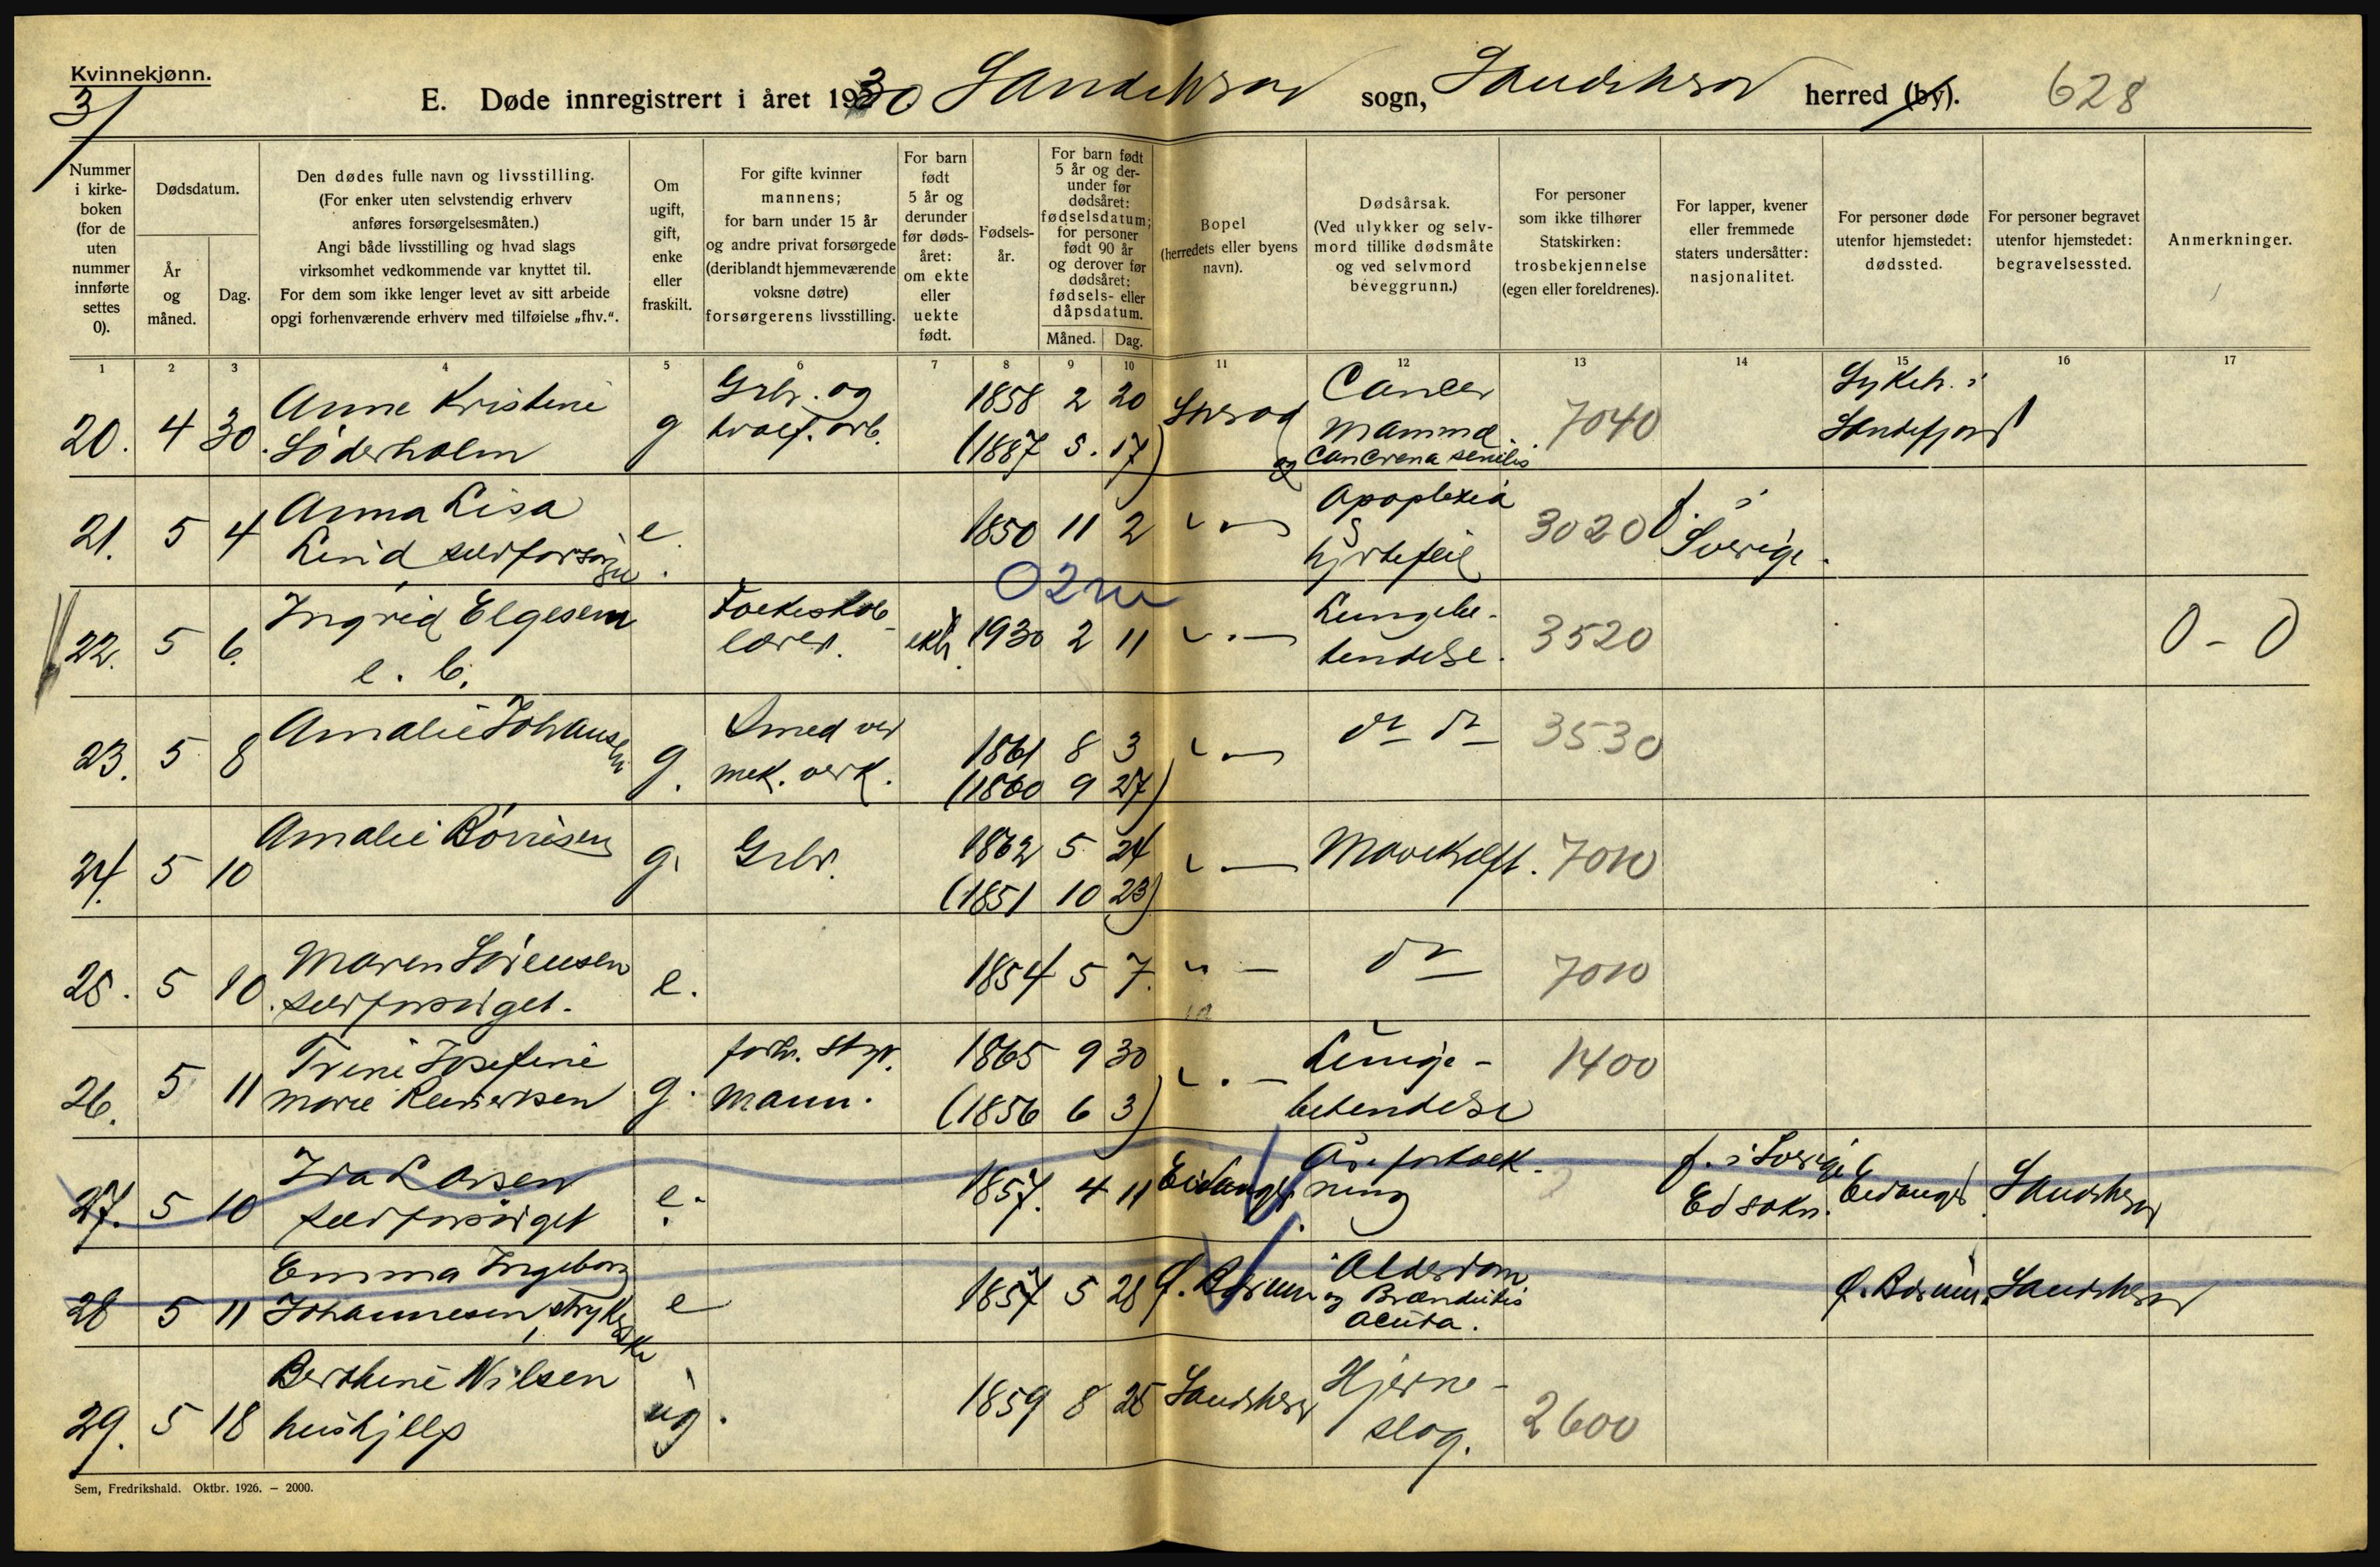 Kvinnekjønn.
3
E. Døde innregistrert i året 1930 Sandeherad sogn, Sandeherad herred (by). 628
Nummer i kirkeboken (for de uten nummer innførte settes 0).
Dødsdatum.
År og måned.
Dag.
Den dødes fulle navn og livsstilling.
(For enker uten selvstendig erhverv
anføres forsørgelsesmåten.)
Angi både livsstilling og hvad slags
virksomhet vedkommende var knyttet til.
For dem som ikke lenger levet av sitt arbeide
opgi forhenværende erhverv med tilføielse „fhv.“.
Om ugift, gift, enke eller fraskilt.
For gifte kvinner
mannens;
for barn under 15 år
og andre privat forsørgede
(deriblandt hjemmeværende
voksne døtre)
forsørgerens livsstilling.
For barn født 5 år og derunder før dødsåret: om ekte eller uekte født.
Fødselsår.
For barn født 5 år og derunder før dødsåret: fødselsdatum; for personer født 90 år og derover før dødsåret: fødsels- eller dåpsdatum.
Måned. Dag.
Bopel
(herredets eller byens
navn).
Dødsårsak.
(Ved ulykker og selv-
mord tillike dødsmåte
og ved selvmord
beveggrunn.)
For personer
som ikke tilhører
Statskirken:
trosbekjennelse
(egen eller foreldrenes).
For lapper, kvener
eller fremmede
staters undersåtter:
nasjonalitet.
For personer døde
utenfor hjemstedet:
dødssted.
For personer begravet
utenfor hjemstedet:
begravelsessted.
Anmerkninger.
1 2 3 4 5 6 7 8 9 10 11 12 13 14 15 16 17
20. 4 30. Anne Kristine
Söderholm g Grbr. og
hvalf. arb. 1858 2 20
(1887 5. 17) Cancer
mamma
og Cancrena senilis 7040 Sykeh. i
Sandefjord
21. 5 4 Anna Lisa
Lind, selvforsørget e. 1850 11 2 " Apoplexia
&
hjertefeil 3020 f. i
Sverige.
O2m
22. 5 6. Ingrid Elgesem
e. b. Folkeskole-
lærer. ekte. 1930 2 11 " Lungebe-
tendelse. 3520 0 - 0
23. 5 8 Amalie Johansen g. Smed ved
mek. verk. 1861 8 3
(1860 9 27) " do do 3530
24. 5 10 Amalie Børresen g. Grbr. 1862 5 24
(1851 10 23) " Mavekræft. 7010
25. 5 10. Maren Sørensen
selvforsørget. e. 1854 5 7. " do 7010
26. 5 11 Trine Josefine
Marie Reiersen g. forh. styr.
mann. 1865 9 30
(1856 6 3) " Lunge-
betendelse 1400
27. 5 10 Ida Larsen
selvforsørget e. 1857. 4 11 Eidanger Åreforkalk-
ning f. i Sverige
Ed sokn. Eidanger Sandeherad
28 5 11 Emma Ingeborg
Johannesen, strykerske e 1857 5 28 Ø. Bærum Alderdom
og Bronchitis
acuta. Ø. Bærum. Sandeherad
29. 5 18 Berthine Nilsen
hushjelp ug. 1859 8 25 Sandeherad Hjerne-
slag. 2600
Sem, Fredrikshald. Oktbr. 1926. – 2000.